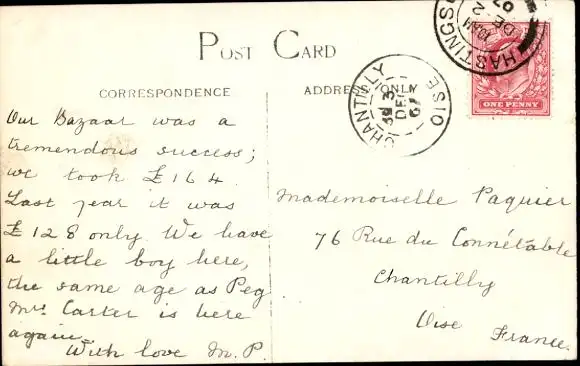 POST CARD
CORRESPONDENCE
ADDRESS ONLY
Our Bazaar was a
tremendous success;
we took £164
Last year it was
£128 only. We have
a little boy here,
the same age as Peg
Mrs Carter is here
again.
With love M.P.
Mademoiselle Paquier
76 Rue du Connétable
Chantilly
Oise France.
HASTINGS
10 AM
DE 2
07
CHANTILLY
OISE
3
DEC
ONE PENNY